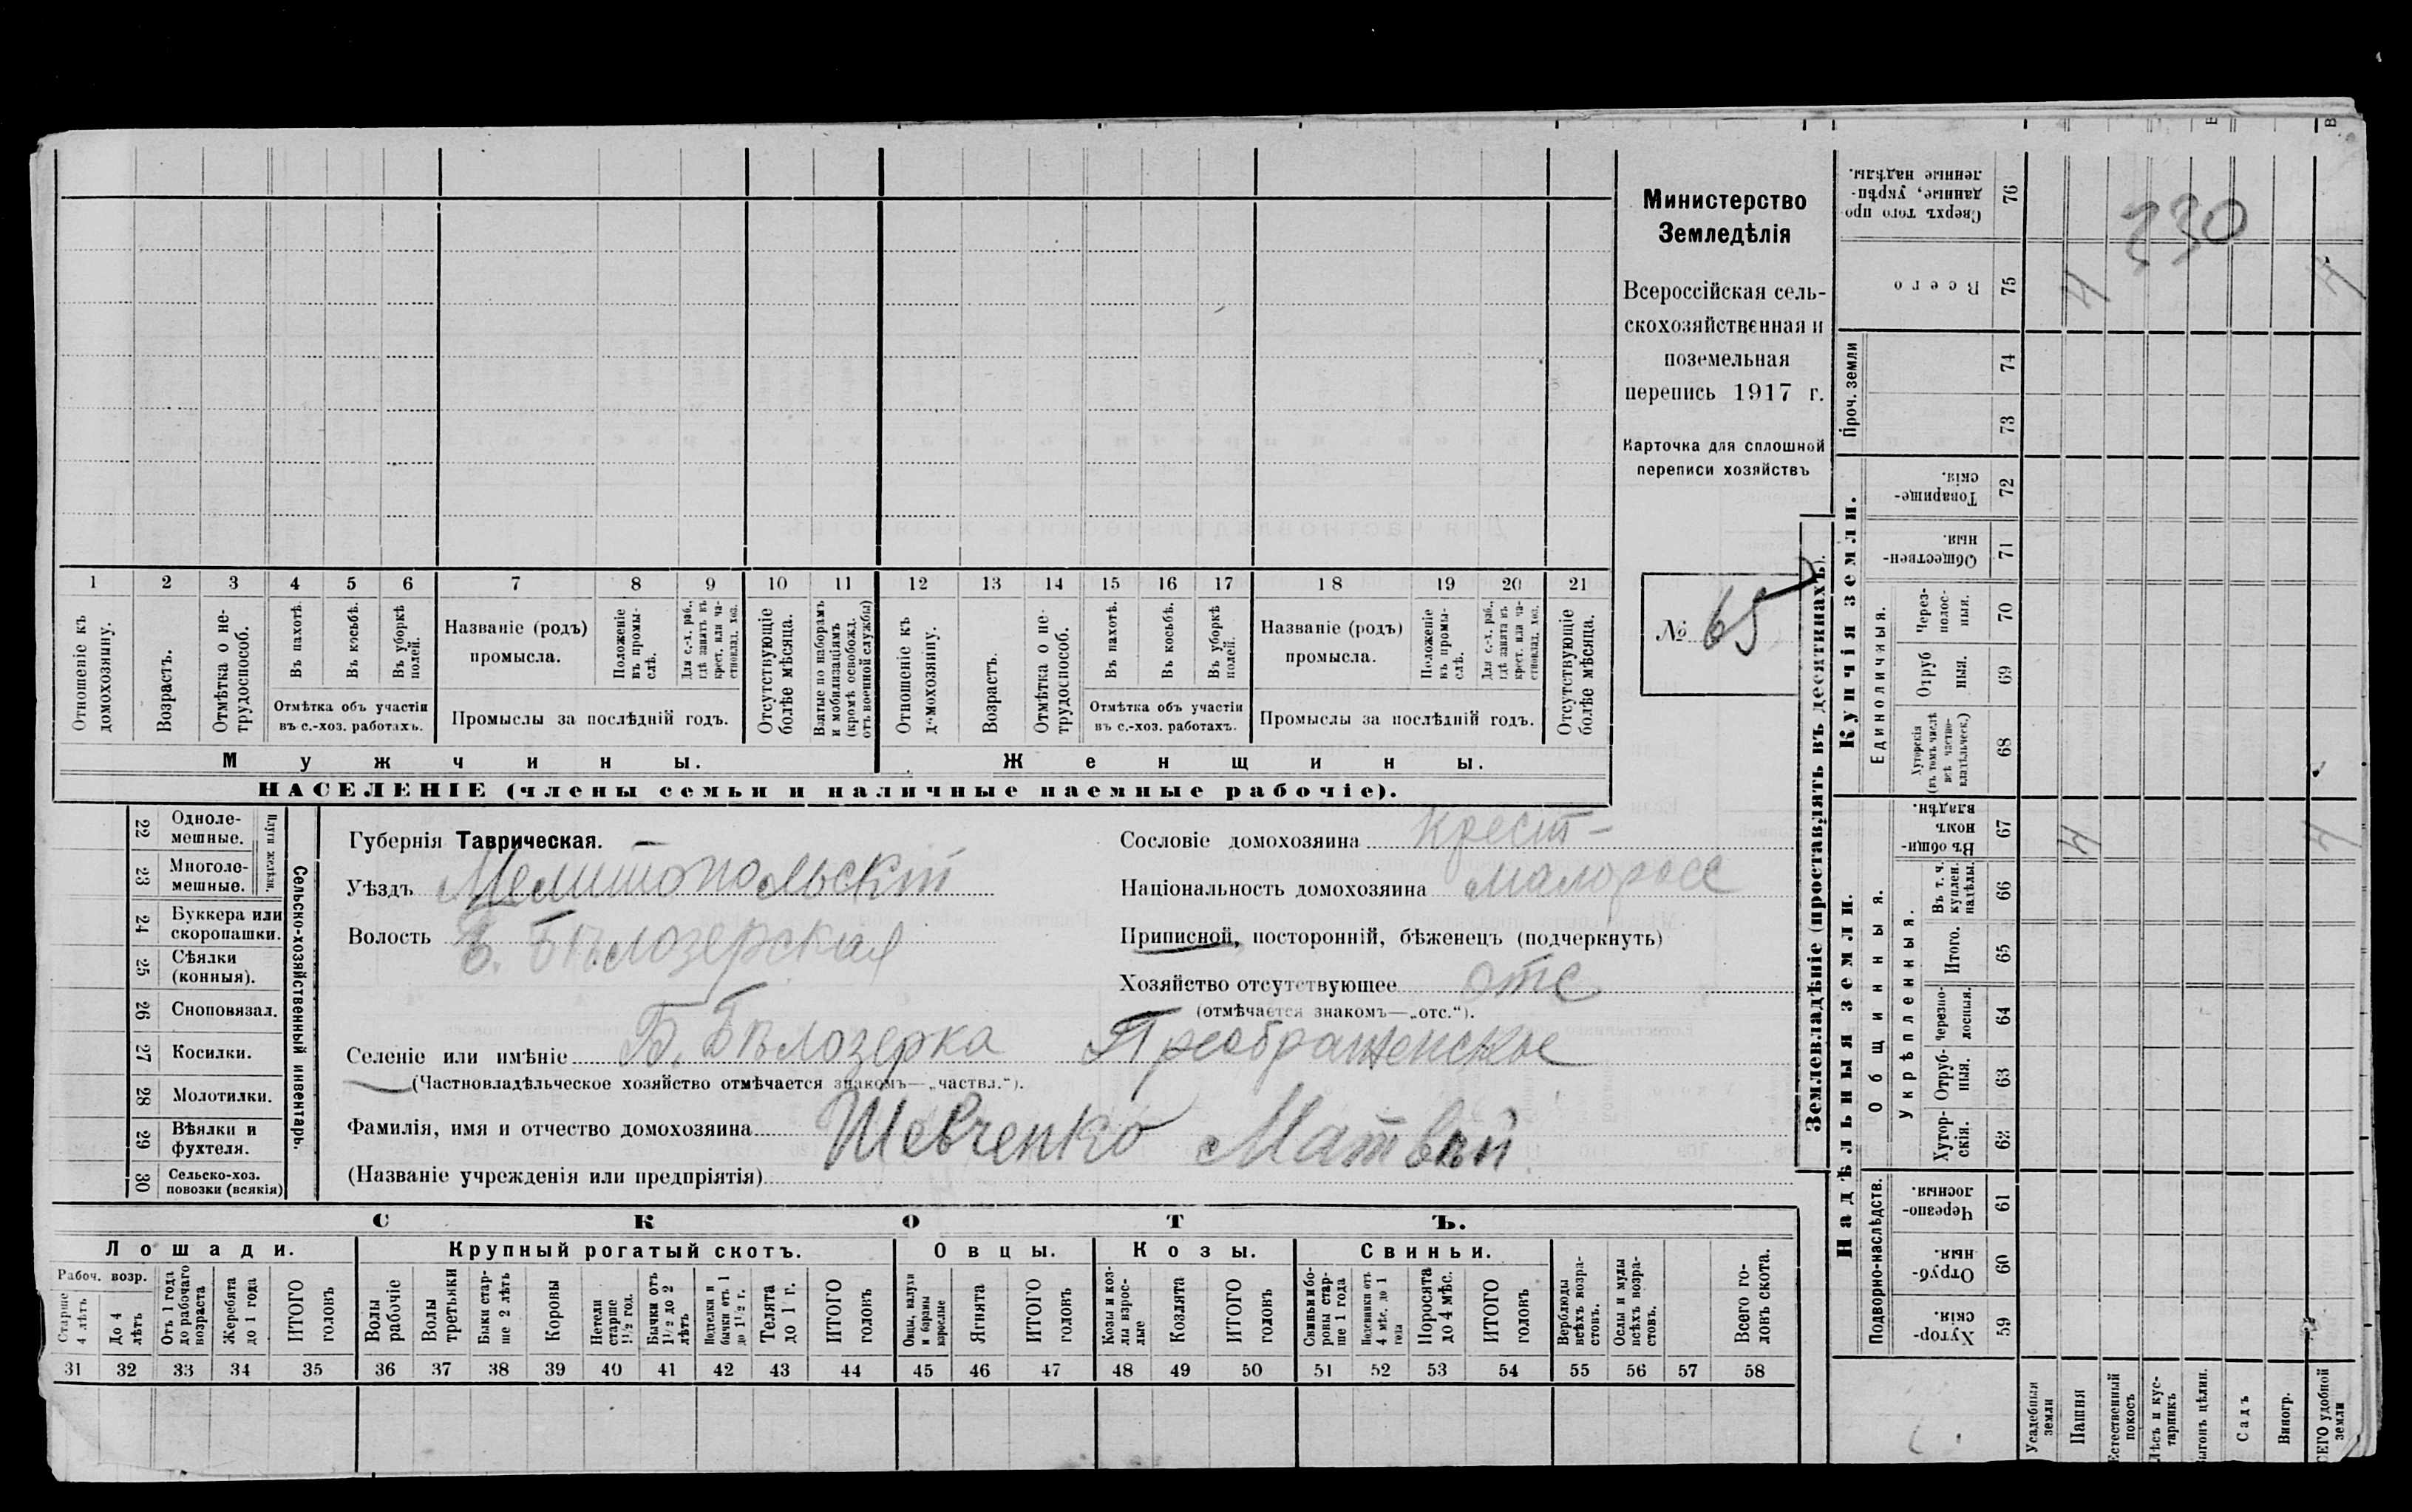 Министерство
Земледѣлія
Всероссійская сель-
скохозяйственная и
поземельная
перепись 1917 г.
Карточка для сплошной
переписи хозяйствъ
№ 65
1 2 3 4 5 6 7 8 9 10 11 12 13 14 15 16 17 18 19 20 21
Отношеніе къ домохозяину.
Возрастъ.
Отмѣтка о не-трудоспособ.
Въ пахотѣ.
Въ косьбѣ.
Въ уборкѣ полей.
Отмѣтка объ участіи
въ с.-хоз. работахъ.
Названіе (родъ)
промысла.
Положеніе въ промы-слѣ.
Для с.-х. раб., гдѣ занятъ въ крест. или ча-стновлад. хоз.
Промыслы за послѣдній годъ.
Отсутствующіе болѣе мѣсяца.
Взятые по наборамъ и мобилизаціямъ (кромѣ освобожд. отъ военной службы)
Отношеніе къ домохозяину.
Возрастъ.
Отмѣтка о не-трудоспособ.
Въ пахотѣ.
Въ косьбѣ.
Въ уборкѣ полей.
Отмѣтка объ участіи
въ с.-хоз. работахъ.
Названіе (родъ)
промысла.
Положеніе въ промы-слѣ.
Для с.-х. раб., гдѣ занята въ крест. или ча-стновлад. хоз.
Промыслы за послѣдній годъ.
Отсутствующіе болѣе мѣсяца.
Мужчины.
Женщины.
НАСЕЛЕНІЕ (члены семьи и наличные наемные рабочіе).
22 Одноле-мешные.
23 Многоле-мешные.
Плуги желѣзн.
24 Буккера или скоропашки.
25 Сѣялки (конныя).
26 Сноповязал.
27 Косилки.
28 Молотилки.
29 Вѣялки и фухтеля.
30 Сельско-хоз. повозки (всякія)
Сельско-хозяйственный инвентарь.
Губернія Таврическая.
Уѣздъ Мелитопольскій
Волость Б. Бѣлозерская
Селеніе или имѣніе Б. Бѣлозерка Преображенское
(Частновладѣльческое хозяйство отмѣчается знакомъ—„частвл.“).
Фамилія, имя и отчество домохозяина Шевченко Матвѣй
(Названіе учрежденія или предпріятія)
Сословіе домохозяина Крест-
Національность домохозяина малоросс
Приписной, посторонній, бѣженецъ (подчеркнуть)
Хозяйство отсутствующее отс
(отмѣчается знакомъ—„отс.“).
СКОТЪ.
Лошади.
Крупный рогатый скотъ.
Овцы.
Козы.
Свиньи.
Рабоч. возр.
Старше 4 лѣтъ
До 4 лѣтъ
Отъ 1 года до рабочаго возраста
Жеребята до 1 года
ИТОГО головъ
Волы рабочіе
Волы третьяки
Быки стар-ше 2 лѣтъ
Коровы
Нетели старше 1½ год.
Бычки отъ 1½ до 2 лѣтъ
Подтелки и бычки отъ 1 до 1½ г.
Телята до 1 г.
ИТОГО головъ
Овцы, валухи и бараны взрослые
Ягнята
ИТОГО головъ
Козы и коз-лы взрос-лые
Козлята
ИТОГО головъ
Свиньи и бо-ровы стар-ше 1 года
Подсвинки отъ 4 мѣс. до 1 года
Поросята до 4 мѣс.
ИТОГО головъ
Верблюды всѣхъ возра-стовъ.
Ослы и мулы всѣхъ возра-стовъ.
Всего го-ловъ скота.
31 32 33 34 35 36 37 38 39 40 41 42 43 44 45 46 47 48 49 50 51 52 53 54 55 56 57 58
Землевладѣніе (проставлять въ десятинахъ).
Надѣльныя земли.
Купчія земли.
Проч. земли
Подворно-наслѣдств.
Общинныя.
Укрѣпленныя.
Единоличныя.
76 Сверхъ того про-данные, укрѣп-ленные надѣлы.
75 Всего
74
73
72 Товарище-скія.
71 Обществен-ныя.
70 Через-полос-ныя.
69 Отруб-ныя.
68 Хуторскія (въ томъ числѣ всѣ частно-владѣльческ.)
67 Въ общин-номъ владѣн.
66 Въ т. ч. куплен. надѣлы.
65 Итого.
64 Черезпо-лосныя.
63 Отруб-ныя.
62 Хутор-скія.
61 Черезпо-лосныя.
60 Отруб-ныя.
59 Хутор-скія.
Усадебныя земли
Пашня
Естественный покосъ
Лѣсъ и кус-тарникъ
Выгонъ цѣлин.
Садъ
Виногр.
ВСЕГО удобной земли
330
4
4
4
4